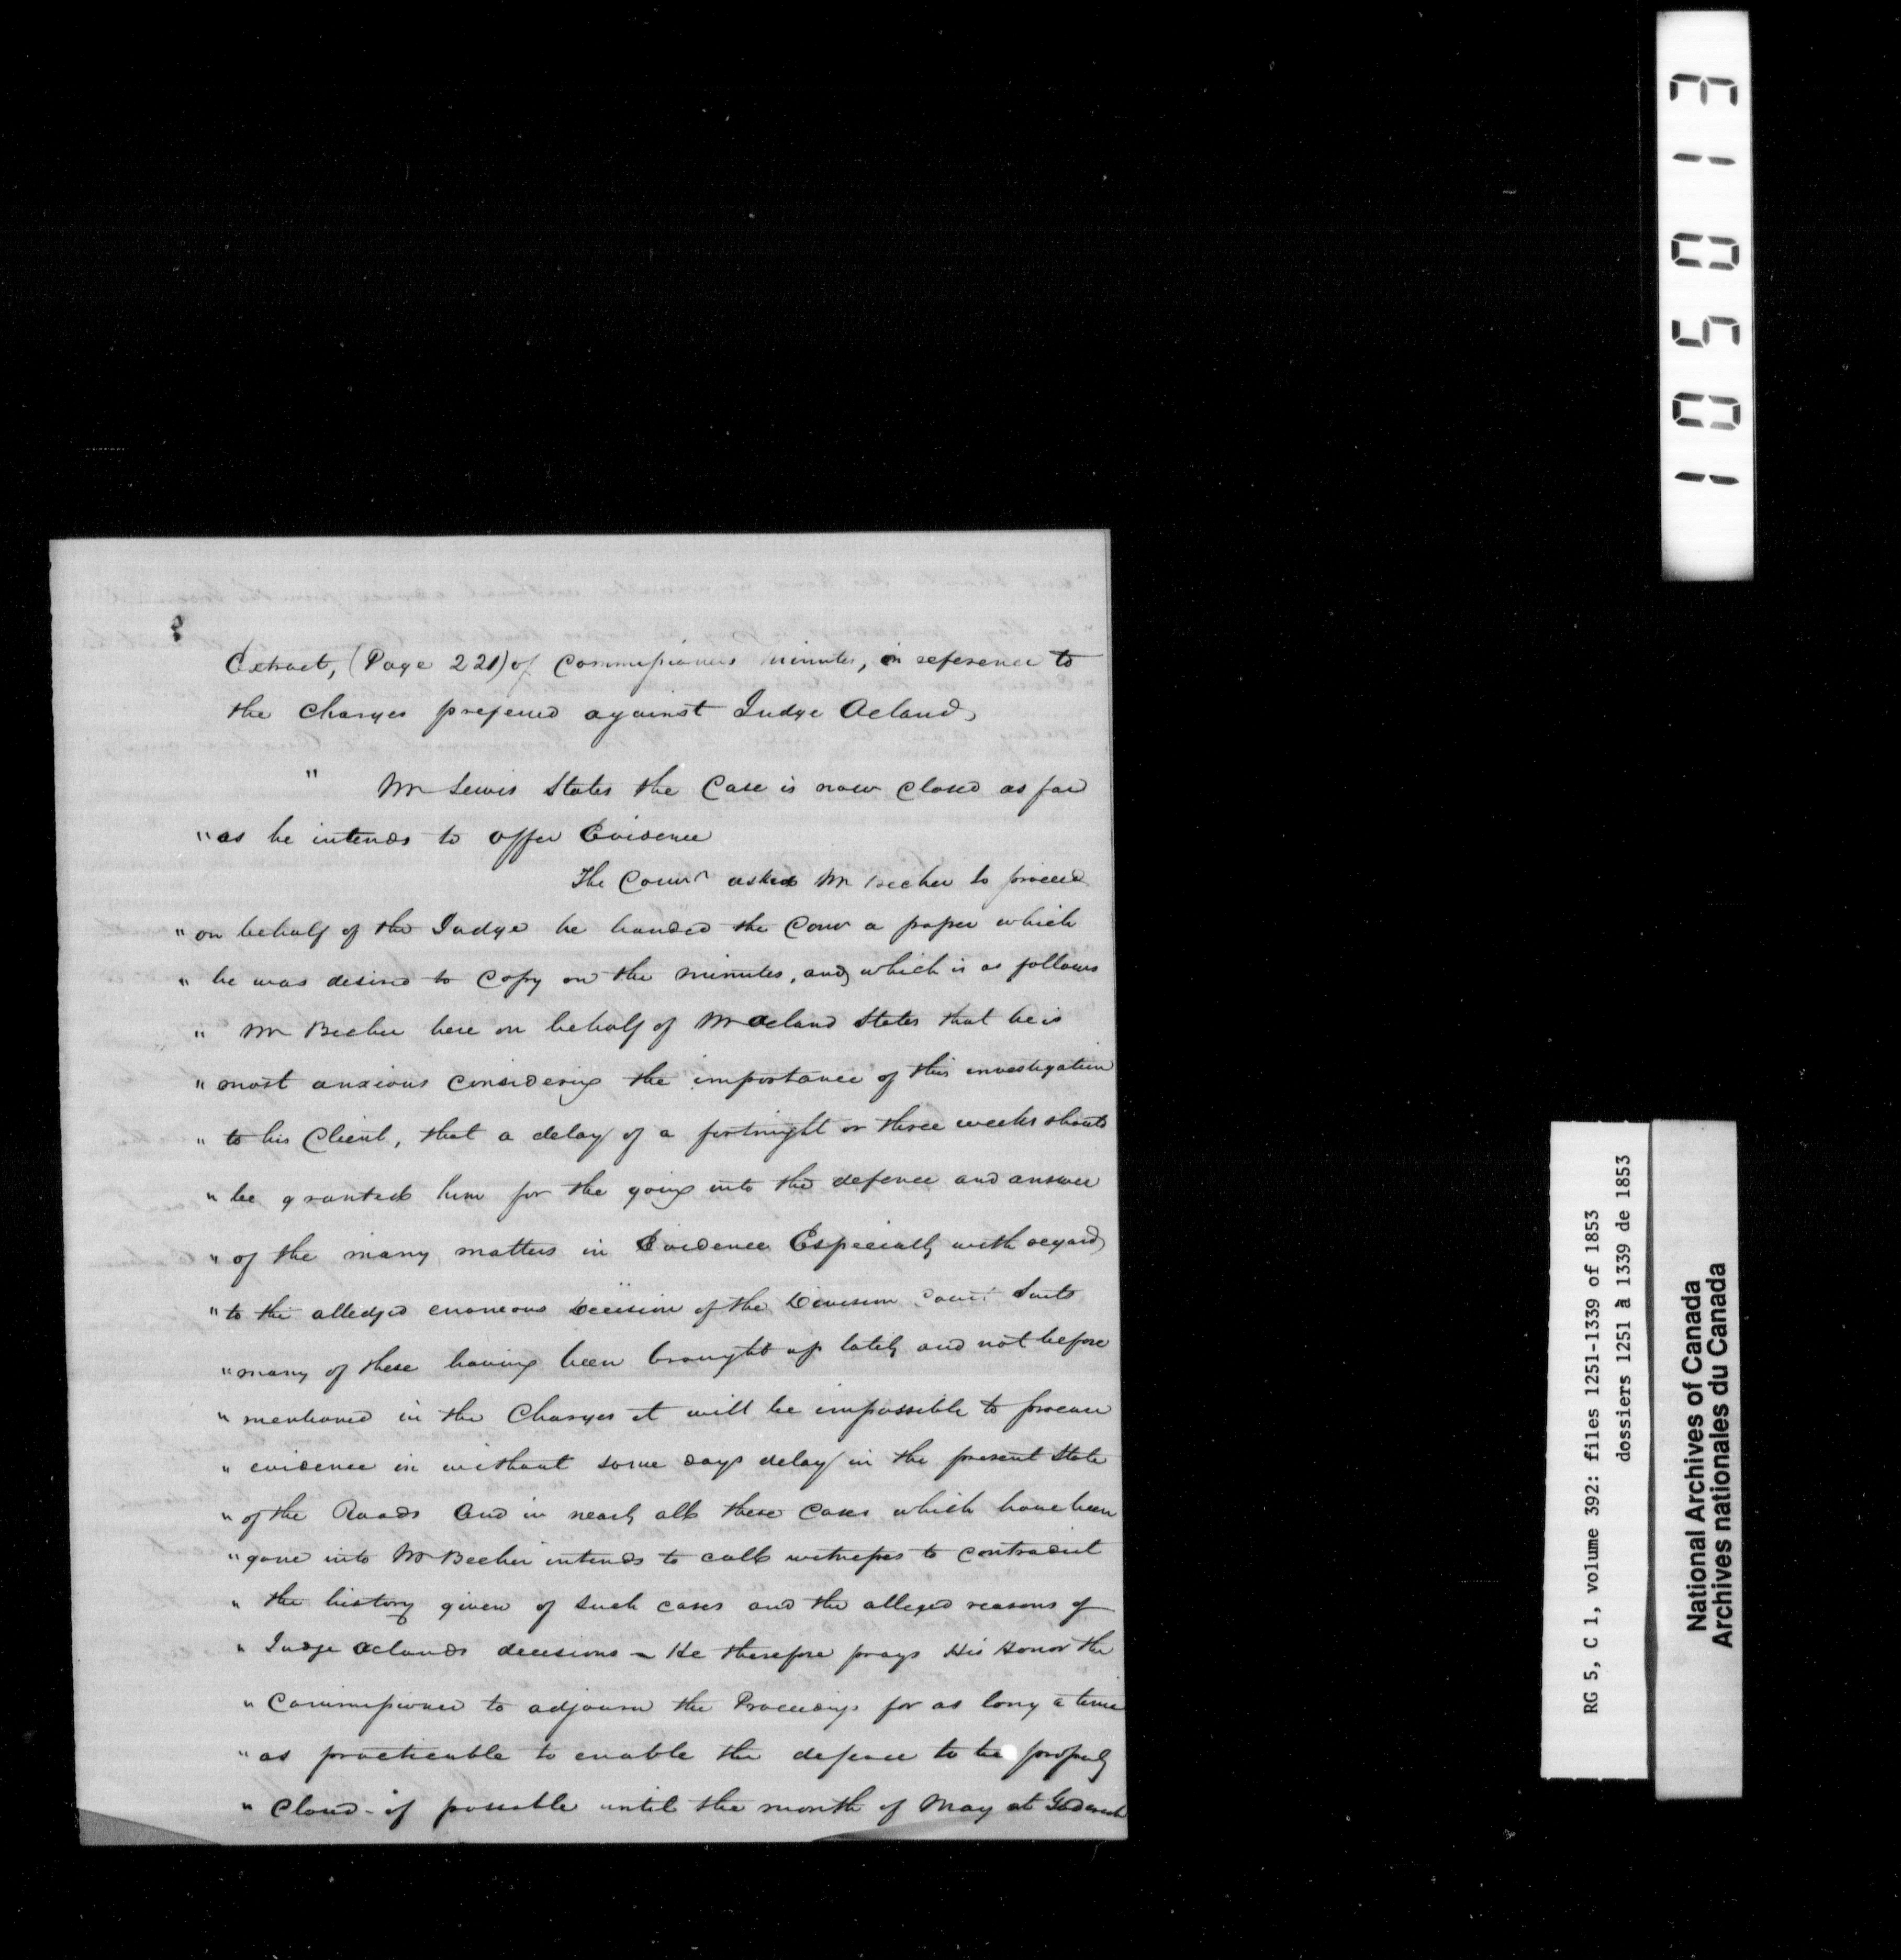 Extract, (Page 221) of Commissioners Minutes, in reference to
the Charges prefered against Judge Acland,
" Mr Lewis States the Case is now Closed as far
" as he intends to offer Evidence
The Comr asked Mr Becher to proceed
" on behalf of the Judge he handed the Comr a paper which
" he was desired to Copy on the minutes, and which is as follows
" Mr Becher here on behalf of Mr Acland States that he is
" most anxious Considering the importance of this investigation
" to his Client, that a delay of a fortnight or three weeks should
" be granted him for the going into the defence and answer
" of the many matters in Evidence Especially with regard
" to the alledged erroneous Decision of the Division Court Suits
" many of these having been brought up lately and not before
" mentioned in the Charges it will be impossible to procure
" evidence in without some days delay in the present State
" of the Roads and in nearly all these Cases which have been
" gone into Mr Becher intends to call witnesses to Contradict
" the history given of such cases and the alleged reasons of
" Judge Aclands decisions - He therefore prays His Honor the
" Commissioner to adjourn the Proceedings for as long a time
" as practicable to enable the defence to be properly
" Closed - if possible until the month of May at Goderich
1050 13
RG 5, C 1, volume 392: files 1251-1339 of 1853
dossiers 1251 à 1339 de 1853
National Archives of Canada
Archives nationales du Canada